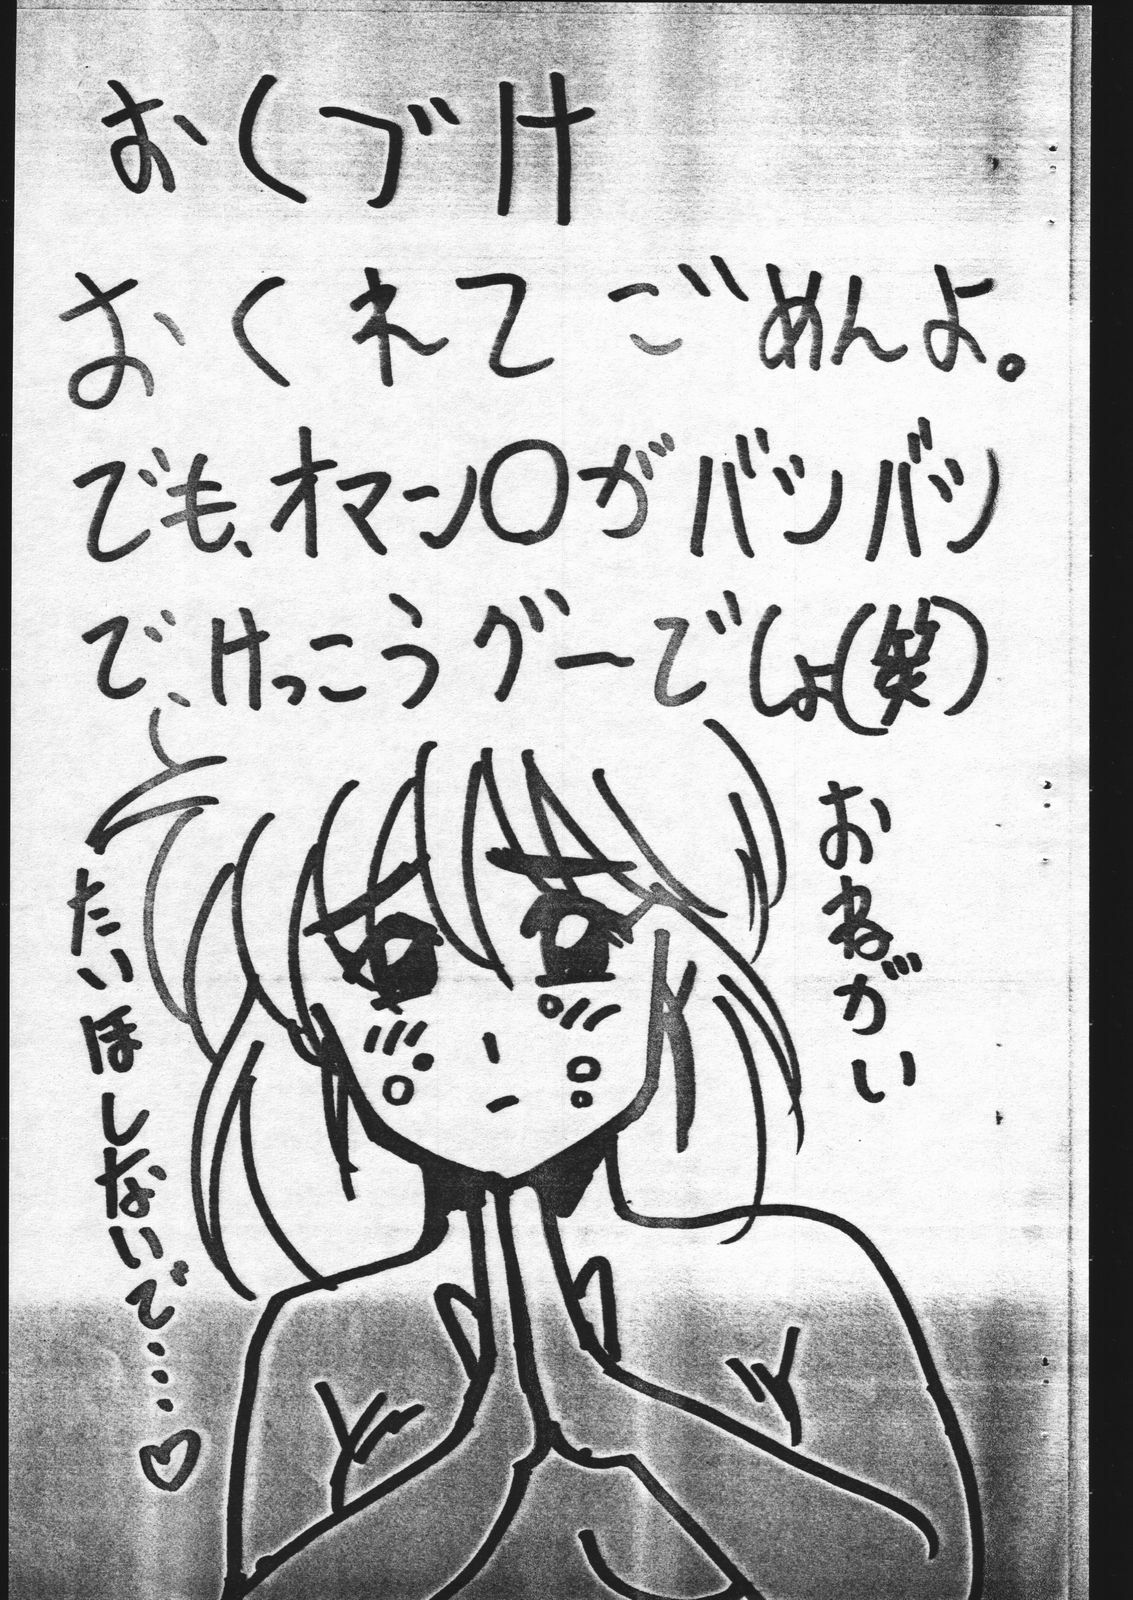 おくづけ
おくれてごめんよ。
でも、オマーン〇がバンバン
で、けっこうグーでしょ(笑)
おねがい
たいほしないで……♡